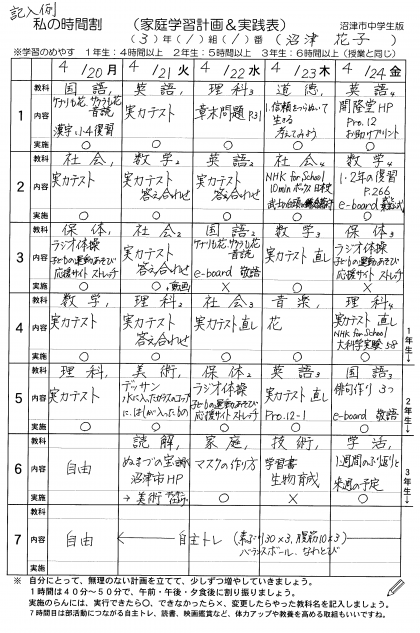 記入例
私の時間割 (家庭学習計画&実践表) 沼津市中学生版
(3)年(1)組(1)番 (沼津 花子)
※学習のめやす 1年生：4時間以上 2年生：5時間以上 3年生：6時間以上(授業と同じ)
4/20月 4/21火 4/22水 4/23木 4/24金
1
教科 国語, 英語, 理科3 道徳, 英語4
内容 音読 漢字1-4復習 実力テスト 章末問題 P31 1.信頼をつらぬいて生きる 考えてみよう 開隆堂HP Pro.12 お助けプリント
実施 ○ ○ ○ ○ ○
2
教科 社会, 数学2 英語2 社会2 数学4
内容 実力テスト 実力テスト 答え合わせ 実力テスト 答え合わせ NHK for School 10minボックス 日本史 1・2年の復習 P.266 e-board
実施 ○ ○ ○ ○ ○
3
教科 保体, 社会2 国語2 数学3 保体3
内容 ラジオ体操 子どもの運動あそび 応援サイト ストレッチ 実力テスト 答え合わせ 音読 e-board 敬語 実力テスト 直し ラジオ体操 子どもの運動あそび 応援サイト ストレッチ
実施 ○ ○ × ○ ×
4
教科 数学, 理科2 社会3 音楽, 理科4
内容 実力テスト 実力テスト 答え合わせ 実力テスト 直し 花 実力テスト 直し NHK for School 大科学実験 58
実施 ○ ○ ○ ○ ○
1年生↓
5
教科 理科, 美術, 保体2 英語3 国語3
内容 実力テスト デッサン 水に入ったガラスのコップに、はしが入ったもの ラジオ体操 子どもの運動あそび 応援サイト ストレッチ 実力テスト 直し Pro.12-1 俳句作り 3つ e-board 敬語
実施 ○ ○ ○ ○ ○
2年生↓
6
教科 読解, 家庭, 技術, 学活,
内容 自由 ぬまづの宝 沼津市HP マスクの作り方 学習書 生物育成 1週間のふり返りと来週の予定
実施 →美術 ○ × ○
3年生↓
7
教科
内容 自由 ← 自主トレ (素ぶり30×3, 腹筋10×3) バランスボール、なわとび →
実施
※ 自分にとって、無理のない計画を立てて、少しずつ増やしていきましょう。
1時間は40分～50分で、午前・午後・夕食後に割り振りましょう。
実施のらんには、実行できたら○、できなかったら×、変更したらやった教科名を記入しましょう。
7時間目は部活動につながる自主トレ、読書、映画鑑賞など、体力アップや教養を高める取組もいいですね。